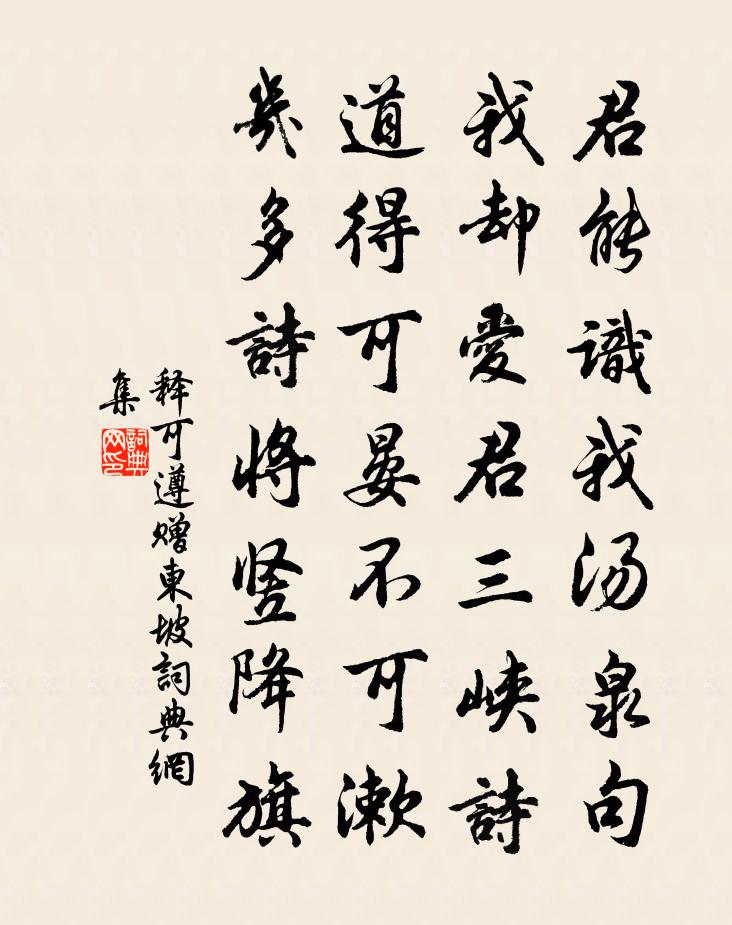 君能識我湯泉句
我却愛君三峽詩
道得可晏不可漱
幾多詩將竖降旗
释可遵赠東坡詞典網
集
詞典
网印